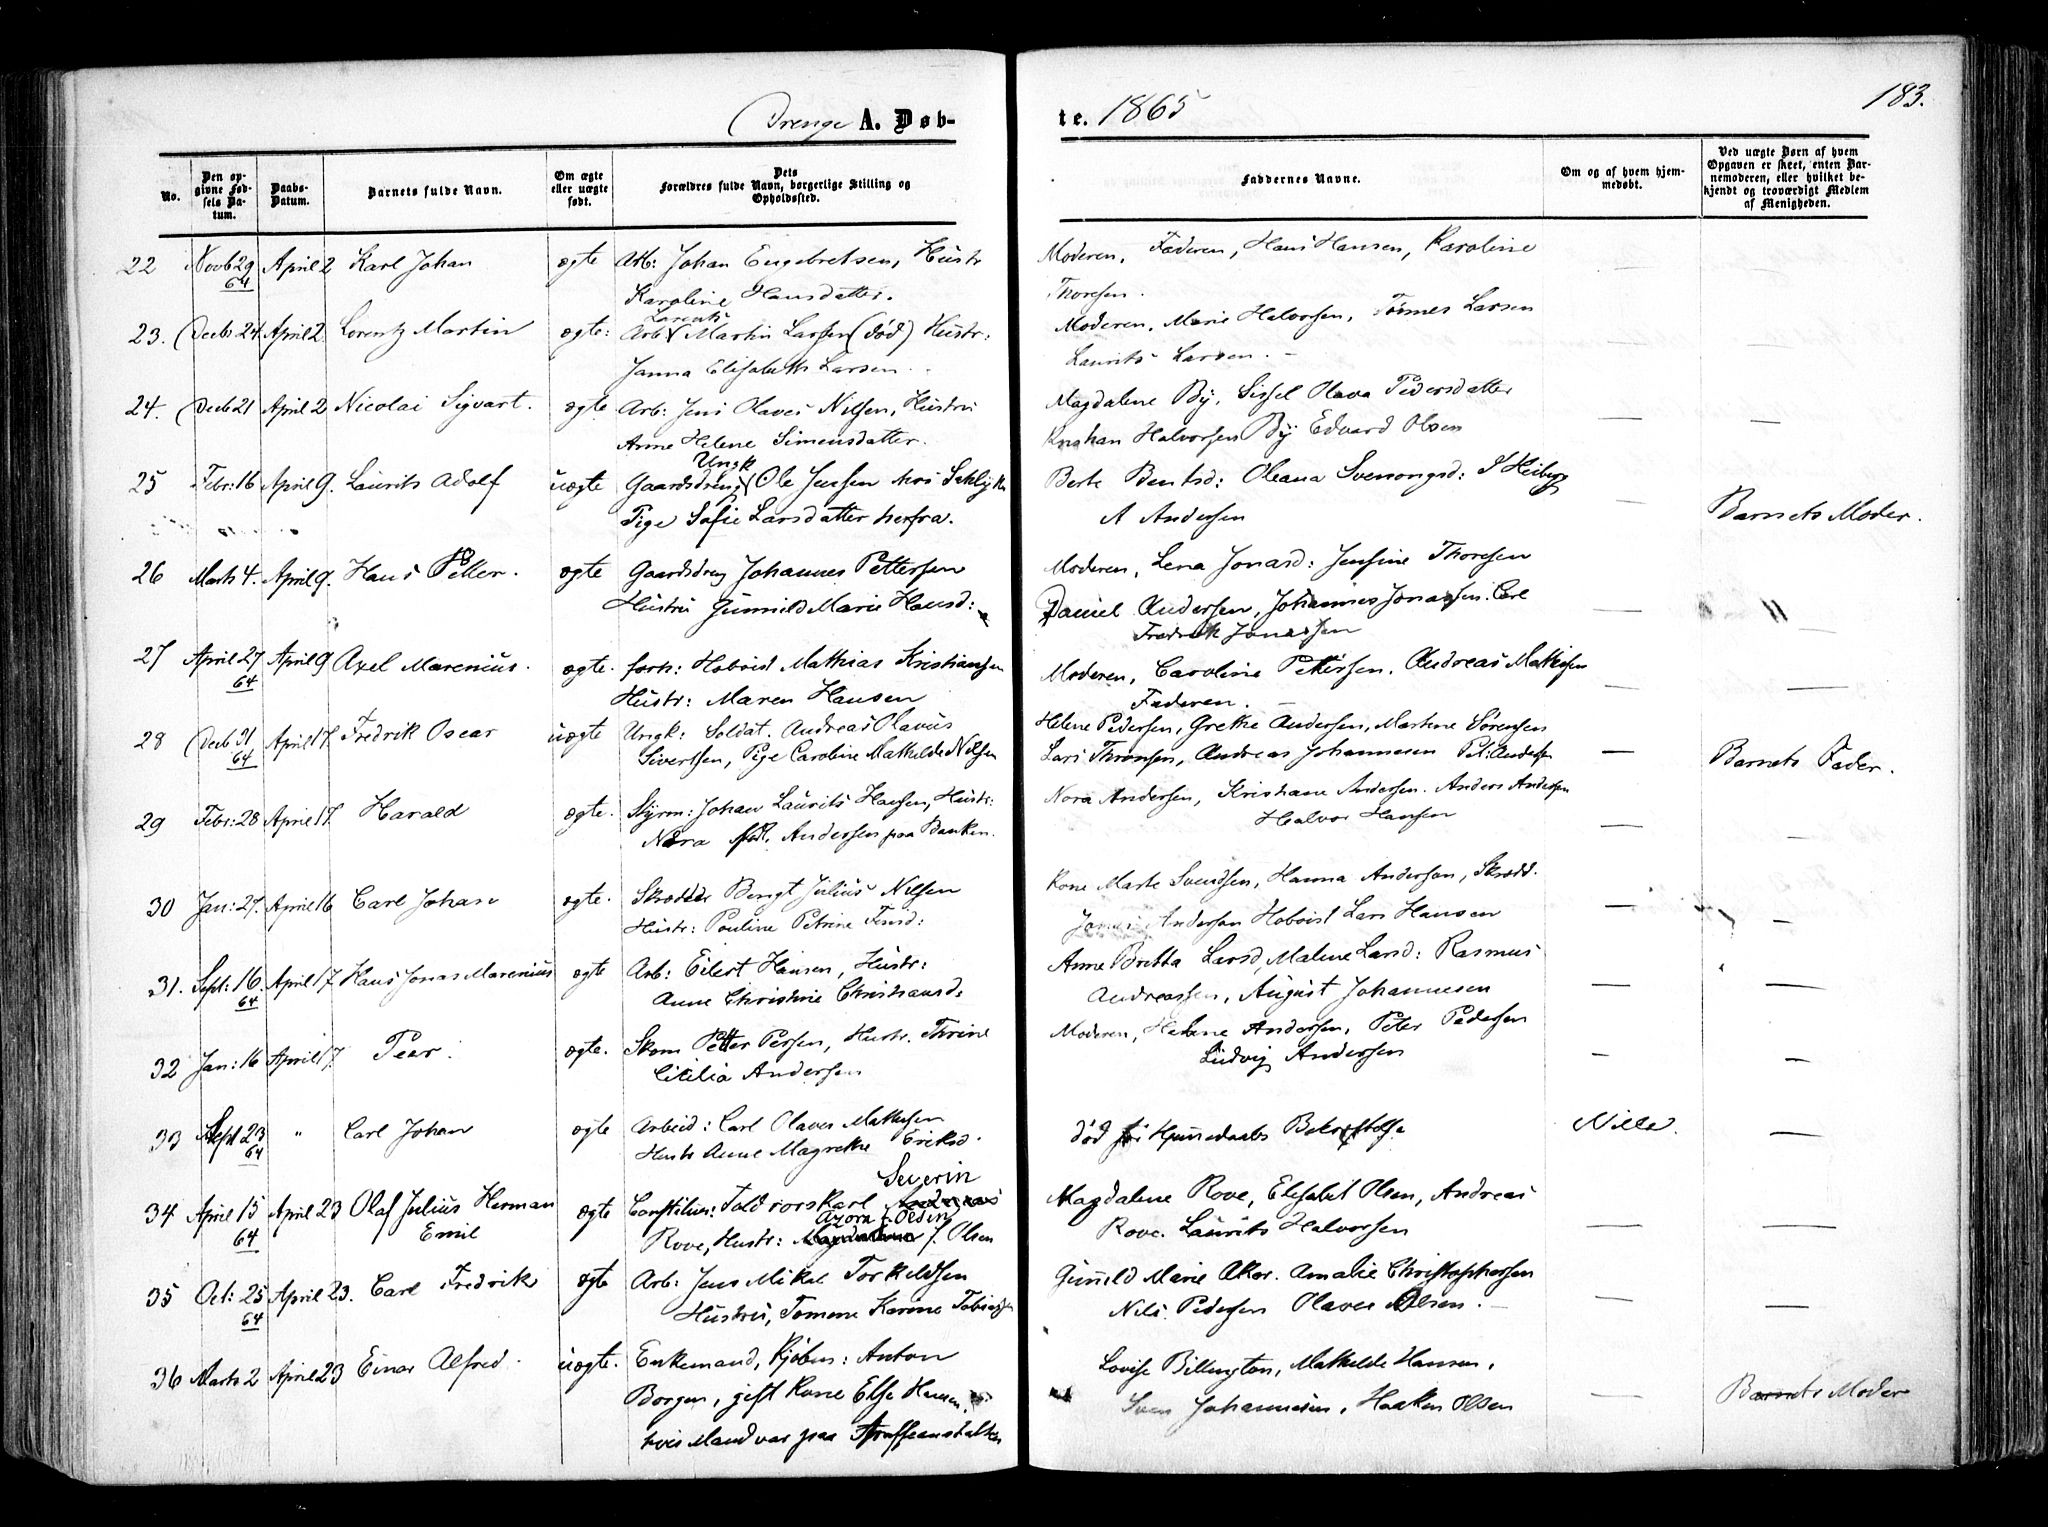 Drenge A. Døb-
te. 1865
183.
No.
Den op-
givne Fød-
sels Da-
tum.
Daabs-
Datum.
Barnets fulde Navn.
Om ægte
eller uægte
født.
Dets
Forældres fulde Navn, borgerlige Stilling og
Opholdssted.
Faddernes Navne.
Om og af hvem hjem-
medøbt.
Ved uægte Børn af hvem
Opgaven er skeet, enten Bar-
nemoderen, eller hvilket be-
kjendt og troværdigt Medlem
af Menigheden.
22 Novb 29 April 2 Karl Johan ægte Arb: Johan Engebretsen, Hustr Moderen, Faderen, Hans Hansen, Karoline
64 Karoline Hansdatter. Thoresen.
Lorents
23. Decb 24. April 2. Lorentz Martin ægte: Arb Martin Larssen (død) Hustr: Moderen, Marie Halvorsen, Tørmes Larsen
Janna Elisabeth Larsen. Laurits Larsen. —
24. Decb 21 April 2 Nicolai Sigvart. ægte Arb: Jens Olaves Nilsen, Hustru Magdalene By, Sissel Olava Pedersdatter
Anne Helene Simensdatter. Halvorsen By Edvard Olsen
Ungk
25 Febr: 16 April 9. Laurits Adolf uægte Gaardsdreng Ole Jensen hos Berte Bentsd: Oleana Svenongsd: S Heiberg
Pige Sofie Larsdatter herfra. A Andersen Barnets Moder.
26 Marts 4. April 9. Hans Petter. ægte Gaardsdreng Johannes Pettersen Moderen, Lena Jonasd: Jensine Thoresen
Hustru Gunnild Marie Hansd: Daniel Andersen, Johannes Jonassen. Carl — "
Fredrik Jonassen
27 April 27 April 9 Axel Marenius. ægte. forh: Hoboist Mathias Kristiansen Moderen, Caroline Pettersen. Andreas Mathisen
64 Hustr: Maren Hansen Faderen. —
28 Decb 31 April 17. Fredrik Oscar uægte Ungk: Soldat. Andreas Olavus Helene Pedersen, Grethe Andersen, Martine Sørensen
64 Sivertsen, Pige Caroline Mathilde Nilsen Lars Thronsen, Andreas Johannesen Pet: Andersen — Barnets Fader.
29 Febr: 28 April 17. Harald ægte. Styrm: Johan Laurits Hansen, Hustr: Nora Andersen, Kristiane Andersen. Anders Andersen
Nora Andersen paa Banken. Halvor Hansen
30 Jan: 27. April 16 Carl Johan ægte. Skredder Bengt Julius Nilsen Kone Marte Svendsen, Hanna Anderson, Skredd.
Hustr: Pauline Petrine Finsd: Andersen Hoboist Lars Hansen
31. Sept: 16. April 17 Hans Jonas Marenius ægte Arb: Eilert Hansen, Hustr: Anne Britta Larsd, Malene Larsd: Rasmus
64 Anne Christine Christiansd: Andreassen, August Johannesen
32 Jan: 16 April 17. Peer. ægte. Skom Petter Persen, Hustr. Thrine Moderen, Helene Andersen, Peter Pedersen
Cicilia Andersen Ludvig Andersen
33 Sept 23 " Carl Johan ægte Arbeid: Carl Olaves Mathisen død før Hjemedaabs Bekræftelse Nille. —
64 Hustr Anne Magrethe Eriksd.
Severin
34 April 15 April 23 Olaf Julius Herman ægte Constitue: Toldrorskarl Andreas Magdalene Rove, Elisabet Olsen, Andreas
64 Emil Azora f. Olsen
Rove, Hustr: Magdalena f. Olsen Rove. Laurits Halvorsen
35 Oct: 25 April 23. Carl Fredrik ægte Arb: Jens Mikal Torkildsen Gunild Marie Aker. Amalie Christophersen
64 Hustru, Tomine Karine Tobiassen Nils Pedersen Olaves Olsen. —
36 Marts 2 April 23 Einar Alfred. uægte. Enkemand, Kjøbm: Anton Lovise Billington, Mathilde Hansen,
Borgen, gift Kone Else Hansen, Sven Johannesen, Haaken Olsen — Barnets Moder
hvis Mand var paa Straffeanstalten